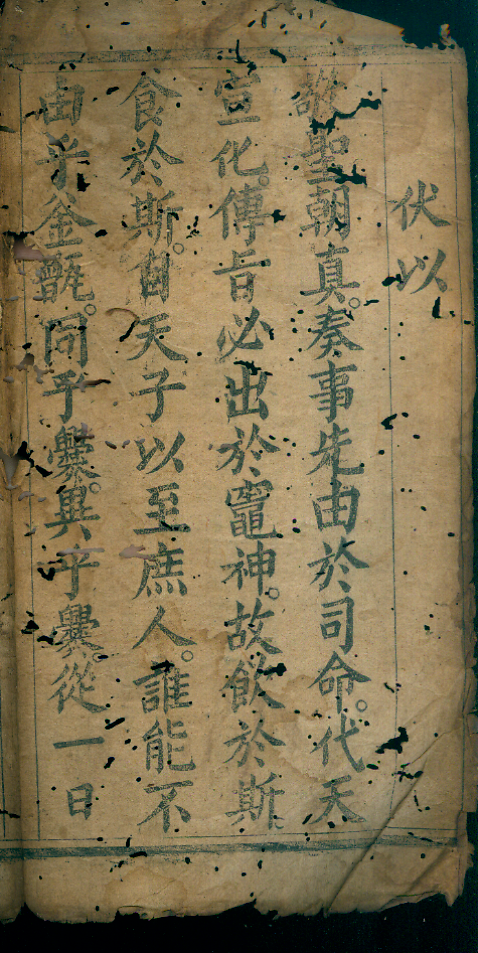 伏以
敬聖朝真。奏事先由於司命。代天
宣化。傳旨必出於竈神。故飲於斯
食於斯。自天子以至庶人。誰能不
由乎釜甑。同乎爨。異乎爨。從一日